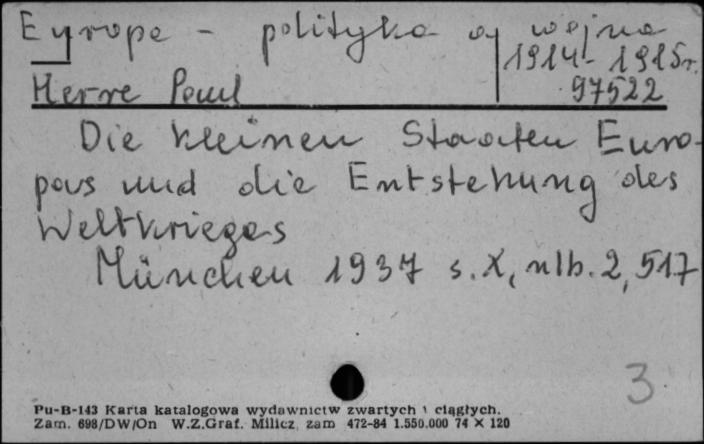 Europa - polityka a wojna
1914-1915r.
Herre Paul
97522
Die kleinen Staaten Euro-
pas und die Entstehung des
Weltkrieges
München 1937 s. X, nlb. 2, 517
3
Pu-B-143 Karta katalogowa wydawnictw zwartych i ciągłych.
Zam. 698/DW/On W.Z.Graf. Milicz, zam 472-84 1.550.000 74 X 120